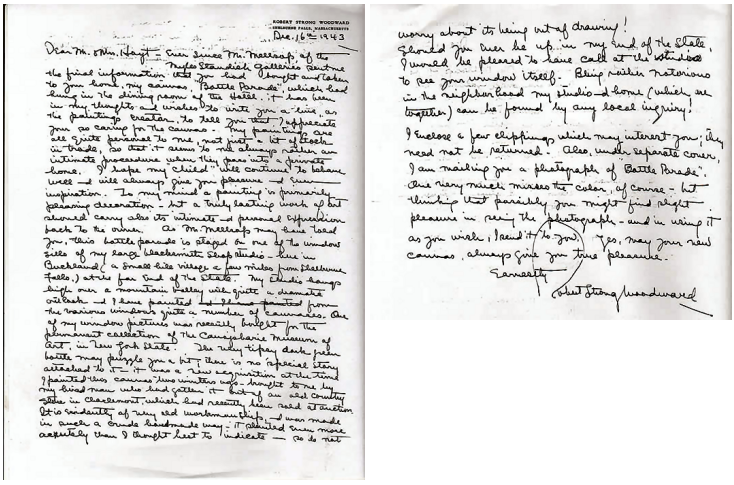 ROBERT STRONG WOODWARD
SHELBURNE FALLS, MASSACHUSETTS
Dec. 16th 1943
Dear Mr. & Mrs. Hoyt — Ever since Mr. Mellsop, of the
Myles Standish Galleries sent me
the final information that you had bought and taken
to your home, my canvas, "Battle Parade", which had
hung in the dining room of the Hotel, it has been
in my thoughts and wishes to write you a line, as
the paintings creator, to tell you that I appreciate
your so caring for the canvas. My paintings are
all quite personal to me, not just a bit of stock
in trade, so that it seems to me always rather an
intimate procedure when they pass into a private
home. I hope my "child" will continue to behave
well — and will always give you pleasure — and even
inspiration. In my mind a painting is primarily
pleasing decoration — but a truly lasting work of art
should carry also its intimate and personal expression
back to the owner. As Mr. Mellsop may have told
you, this bottle parade is staged on one of the window
sills of my large blacksmith shop studio — here in
Buckland (a small hile village a few miles from Shelburne
Falls,) at the far end of the State. My studio hangs
high over a mountain valley with quite a dramatic
outlook — and I have painted from
the various windows quite a number of canvases. One
of my window pictures was recently bought for the
permanent collection of the Canajoharie Museum of
Art, in New York State. The very tipsy dark green
bottle may puzzle you a bit; there is no special story
attached to it — it was a new acquisition at the time
I painted this canvas two winters ago — brought to me by
my hired man who had gotten it out of an old country
store in Charlemont, which had recently been sold at auction.
It is evidently of very old workmanship, and was made
in such a crude handmade way — it slanted even more
acutely than I thought best to indicate — so do not
worry about its being out of drawing!
Should you ever be up in my end of the State,
I would be pleased to have call at the studio
to see your window itself. Being rather notorious
in the neighborhood my studio and home (which are
together) can be found by any local inquiry!
I enclose a few clippings which may interest you; they
need not be returned. Also, under separate cover,
I am mailing you a photograph of "Battle Parade".
One very much misses the color, of course — but
thinking that possibly you might find slight
pleasure in seeing the photograph — and in using it
as you wish, I send it to you. Yes, may your new
canvas, always give you true pleasure.
Earnestly
Robert Strong Woodward